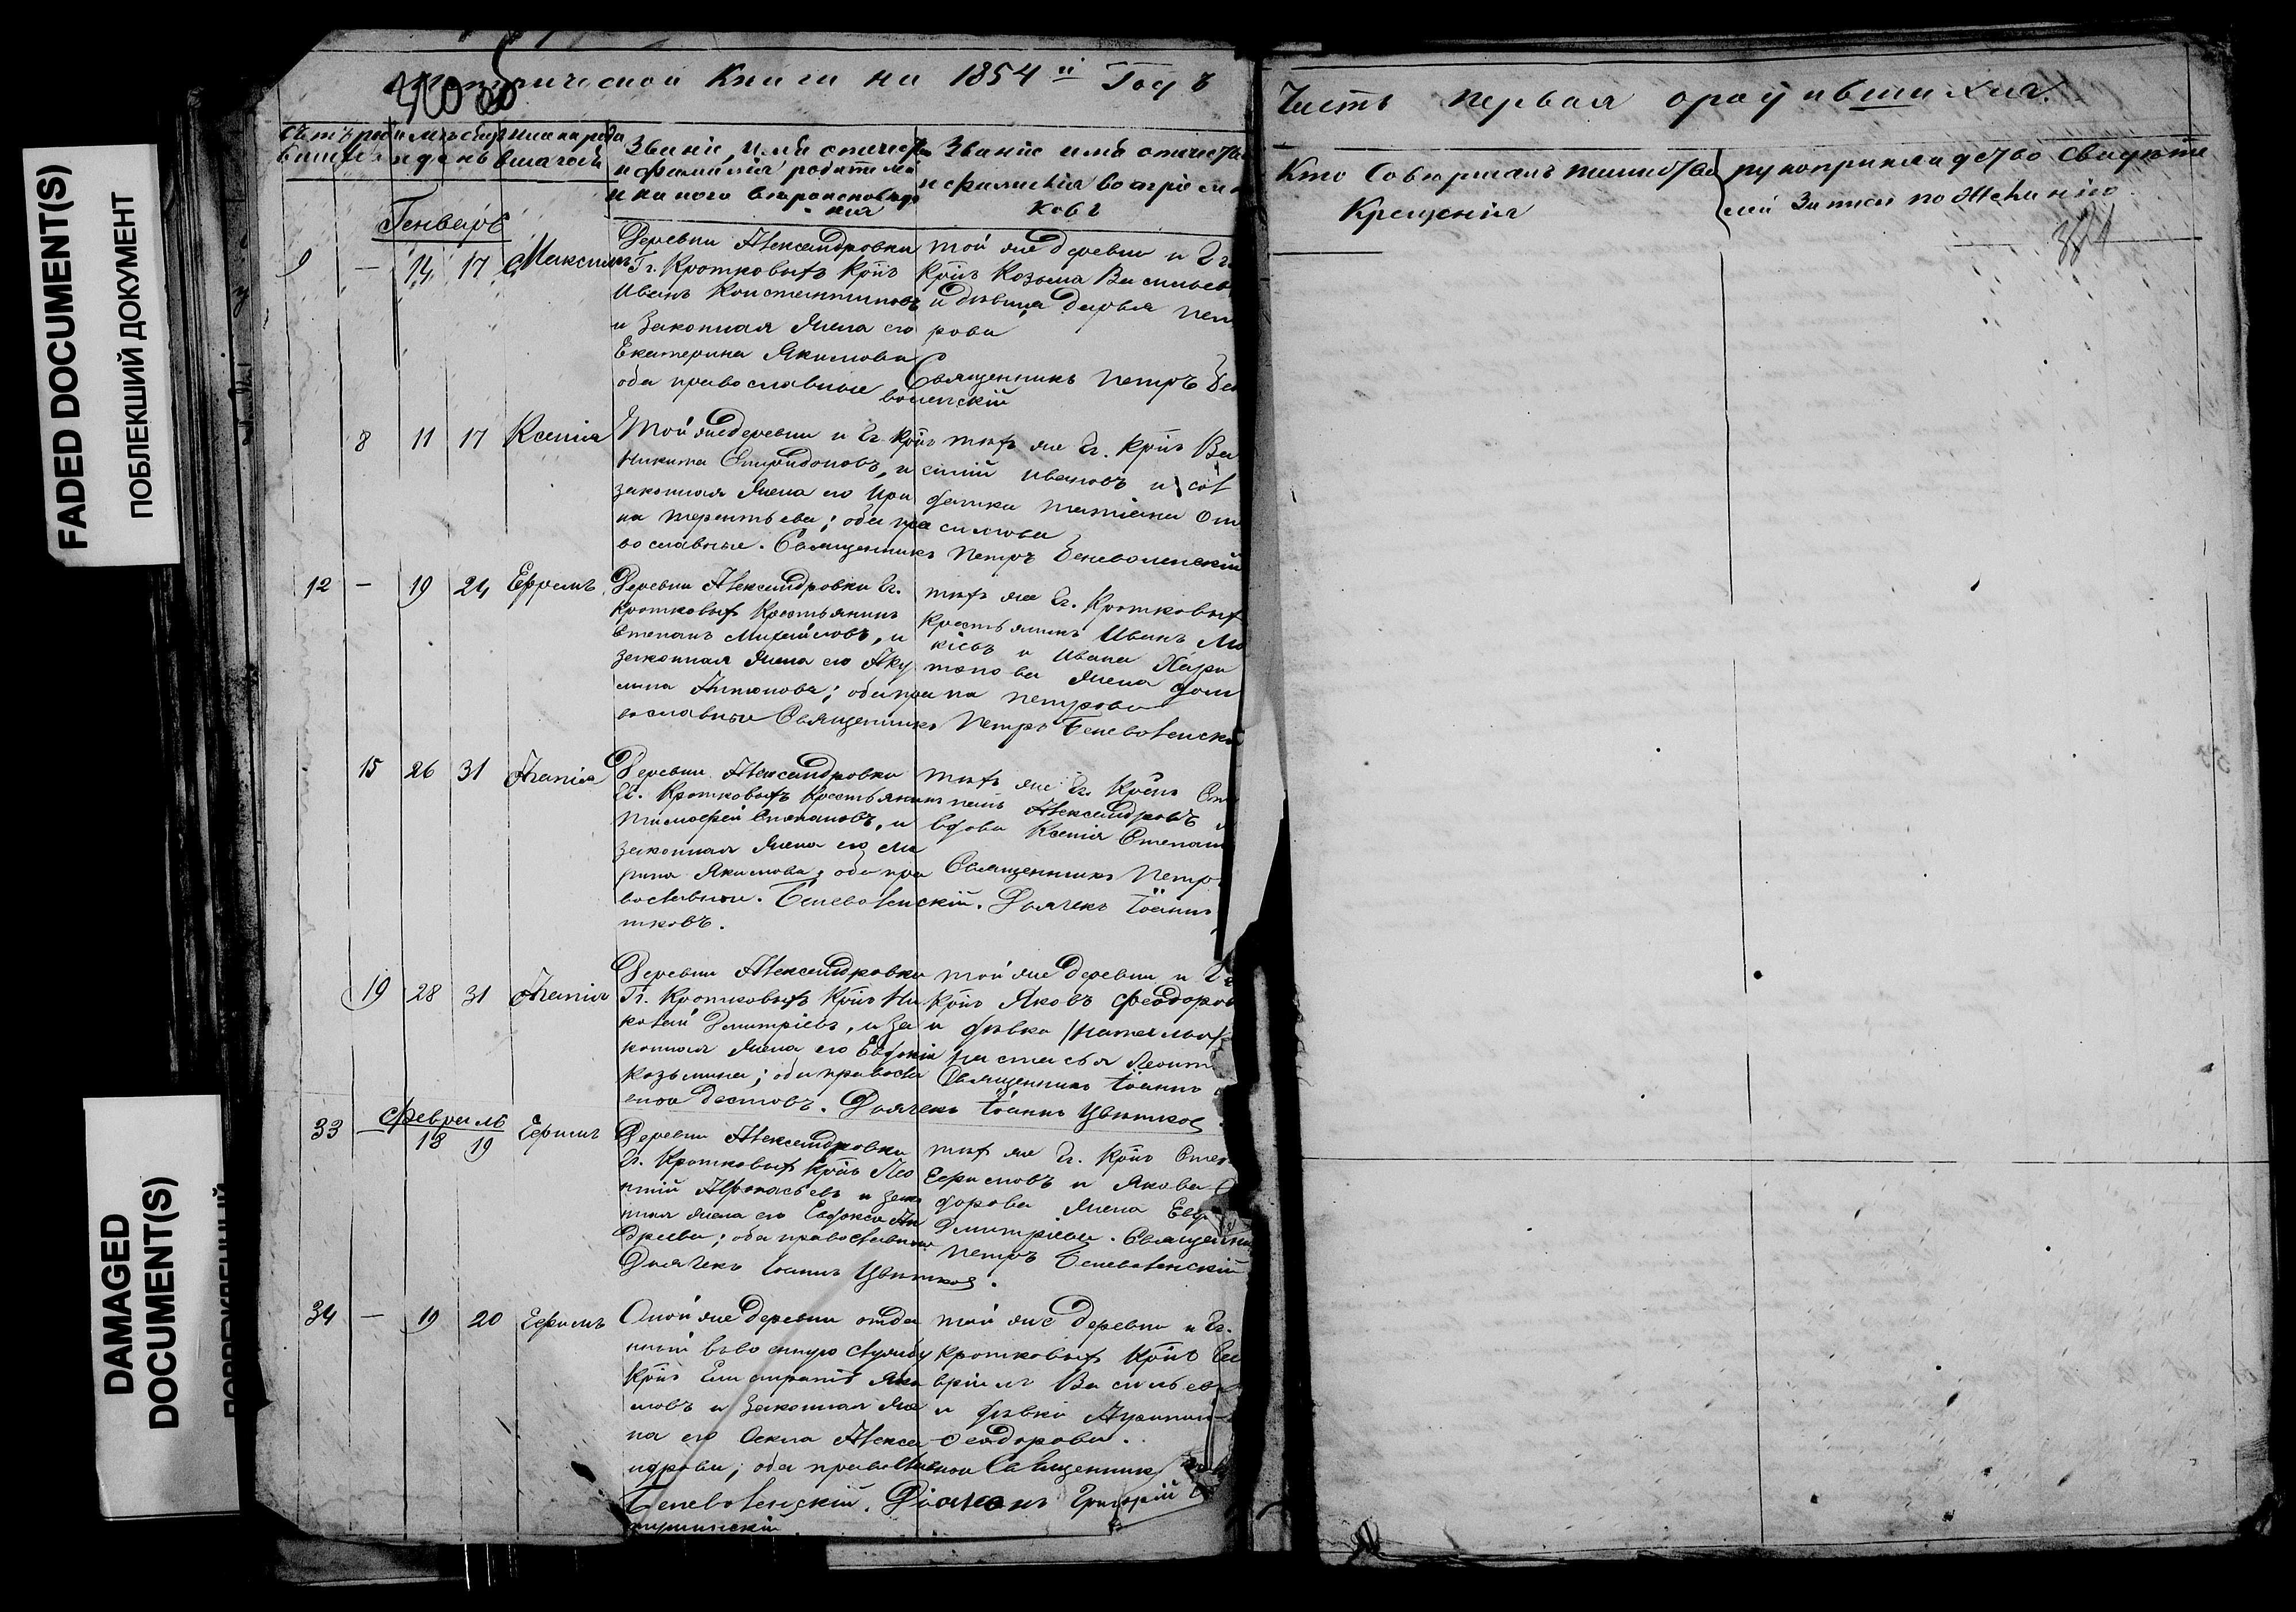 FADED DOCUMENT(S)
ПОБЛЕКШИЙ ДОКУМЕНТ
DAMAGED
DOCUMENT(S)
Метрической Книги на 1854 й Годъ
Часть первая о родившихся.
Званіе, имя отчество
и фамилія родителей
и какого вѣроисповѣда
нія
Званіе имя отчество
и фамилія воспріем
ковъ
Кто Совершалъ таинство
Крещенія
рукоприкладство свидѣте
лей записи по желанію
Генварь
9 — 14 17 Максимъ
Деревни Александровки
Гг. Кротковыхъ Крнъ
Иванъ Константиновъ
и Законная жена его
Екатерина Якимова
оба православные
той же деревни и Гг.
Крнъ Козьма Васильев
и дѣвица Дарья Пет
рова
Священникъ Петръ Бе
воленскій
8 11 17 Ксенія
Той же деревни и Гг. Крнъ
Никита Спиридоновъ, и
законная жена его Ири
на Терентьева; оба пра
вославные. Священникъ Петръ Беневоленскій
тѣхъ же Гг. Крнъ Ва
силій Ивановъ и сол
датка Татіана
симова
12 — 19 24 Ефремъ
Деревни Александровки Гг.
Кротковыхъ Крестьянинъ
Степанъ Михайловъ, и
законная жена его Аку
лина Антонова; оба пра
вославные Священникъ Петръ Беневоленскій
тѣхъ же Гг. Кротковыхъ
Крестьянинъ Иванъ Мо
кіевъ и Ивана Хари
тонова жена Дом
на Петрова
15 26 31 Агапія
Деревни Александровки
Гг. Кротковыхъ Крестьянинъ
Тимофей Степановъ, и
законная жена его Ма
рина Якимова; оба пра
вославные. Беневоленскій. Дьячекъ Іоаннъ
тковъ.
тѣхъ же Гг. Крнъ Сте
панъ Александровъ и
вдова Ксенія Степан
Священникъ Петр
19 28 31 Агапія
Деревни Александровки
Гг. Кротковыхъ Крнъ Ни
колай Дмитріевъ, и за
конная жена его Евдокія
Козьмина; оба правосла
Дьячекъ Іоаннъ Цвѣтков
той же деревни и Гг
Крнъ Яковъ Феодоров
и дѣвка
Настасья Леонт
Священникъ Іоаннъ
Февраль
33 — 18 19 Ефимъ
Деревни Александровки
Гг. Кротковыхъ Крнъ Лео
нтій Афонасьевъ и зако
нная жена его Евдокса Ан
дреева; оба православные
Дьячекъ Іоаннъ Цвѣтков.
тѣхъ же Гг. Крнъ Степ
Ефимовъ и Якова Ф
дорова жена Евд
Дмитріева. Священни
Петръ Беневоленскій
34 — 19 20 Ефимъ
Оной же деревни отда
нный въ военную службу
Крнъ Елистратъ Яки
мовъ и Законная же
на его Фекла Алекса
ндрова; оба православные Священникъ
Беневоленскій. Діаконъ Григорій
той же деревни и Гг.
Кротковыхъ Крнъ Га
вріилъ Васильев
и дѣвка
Феодорова.